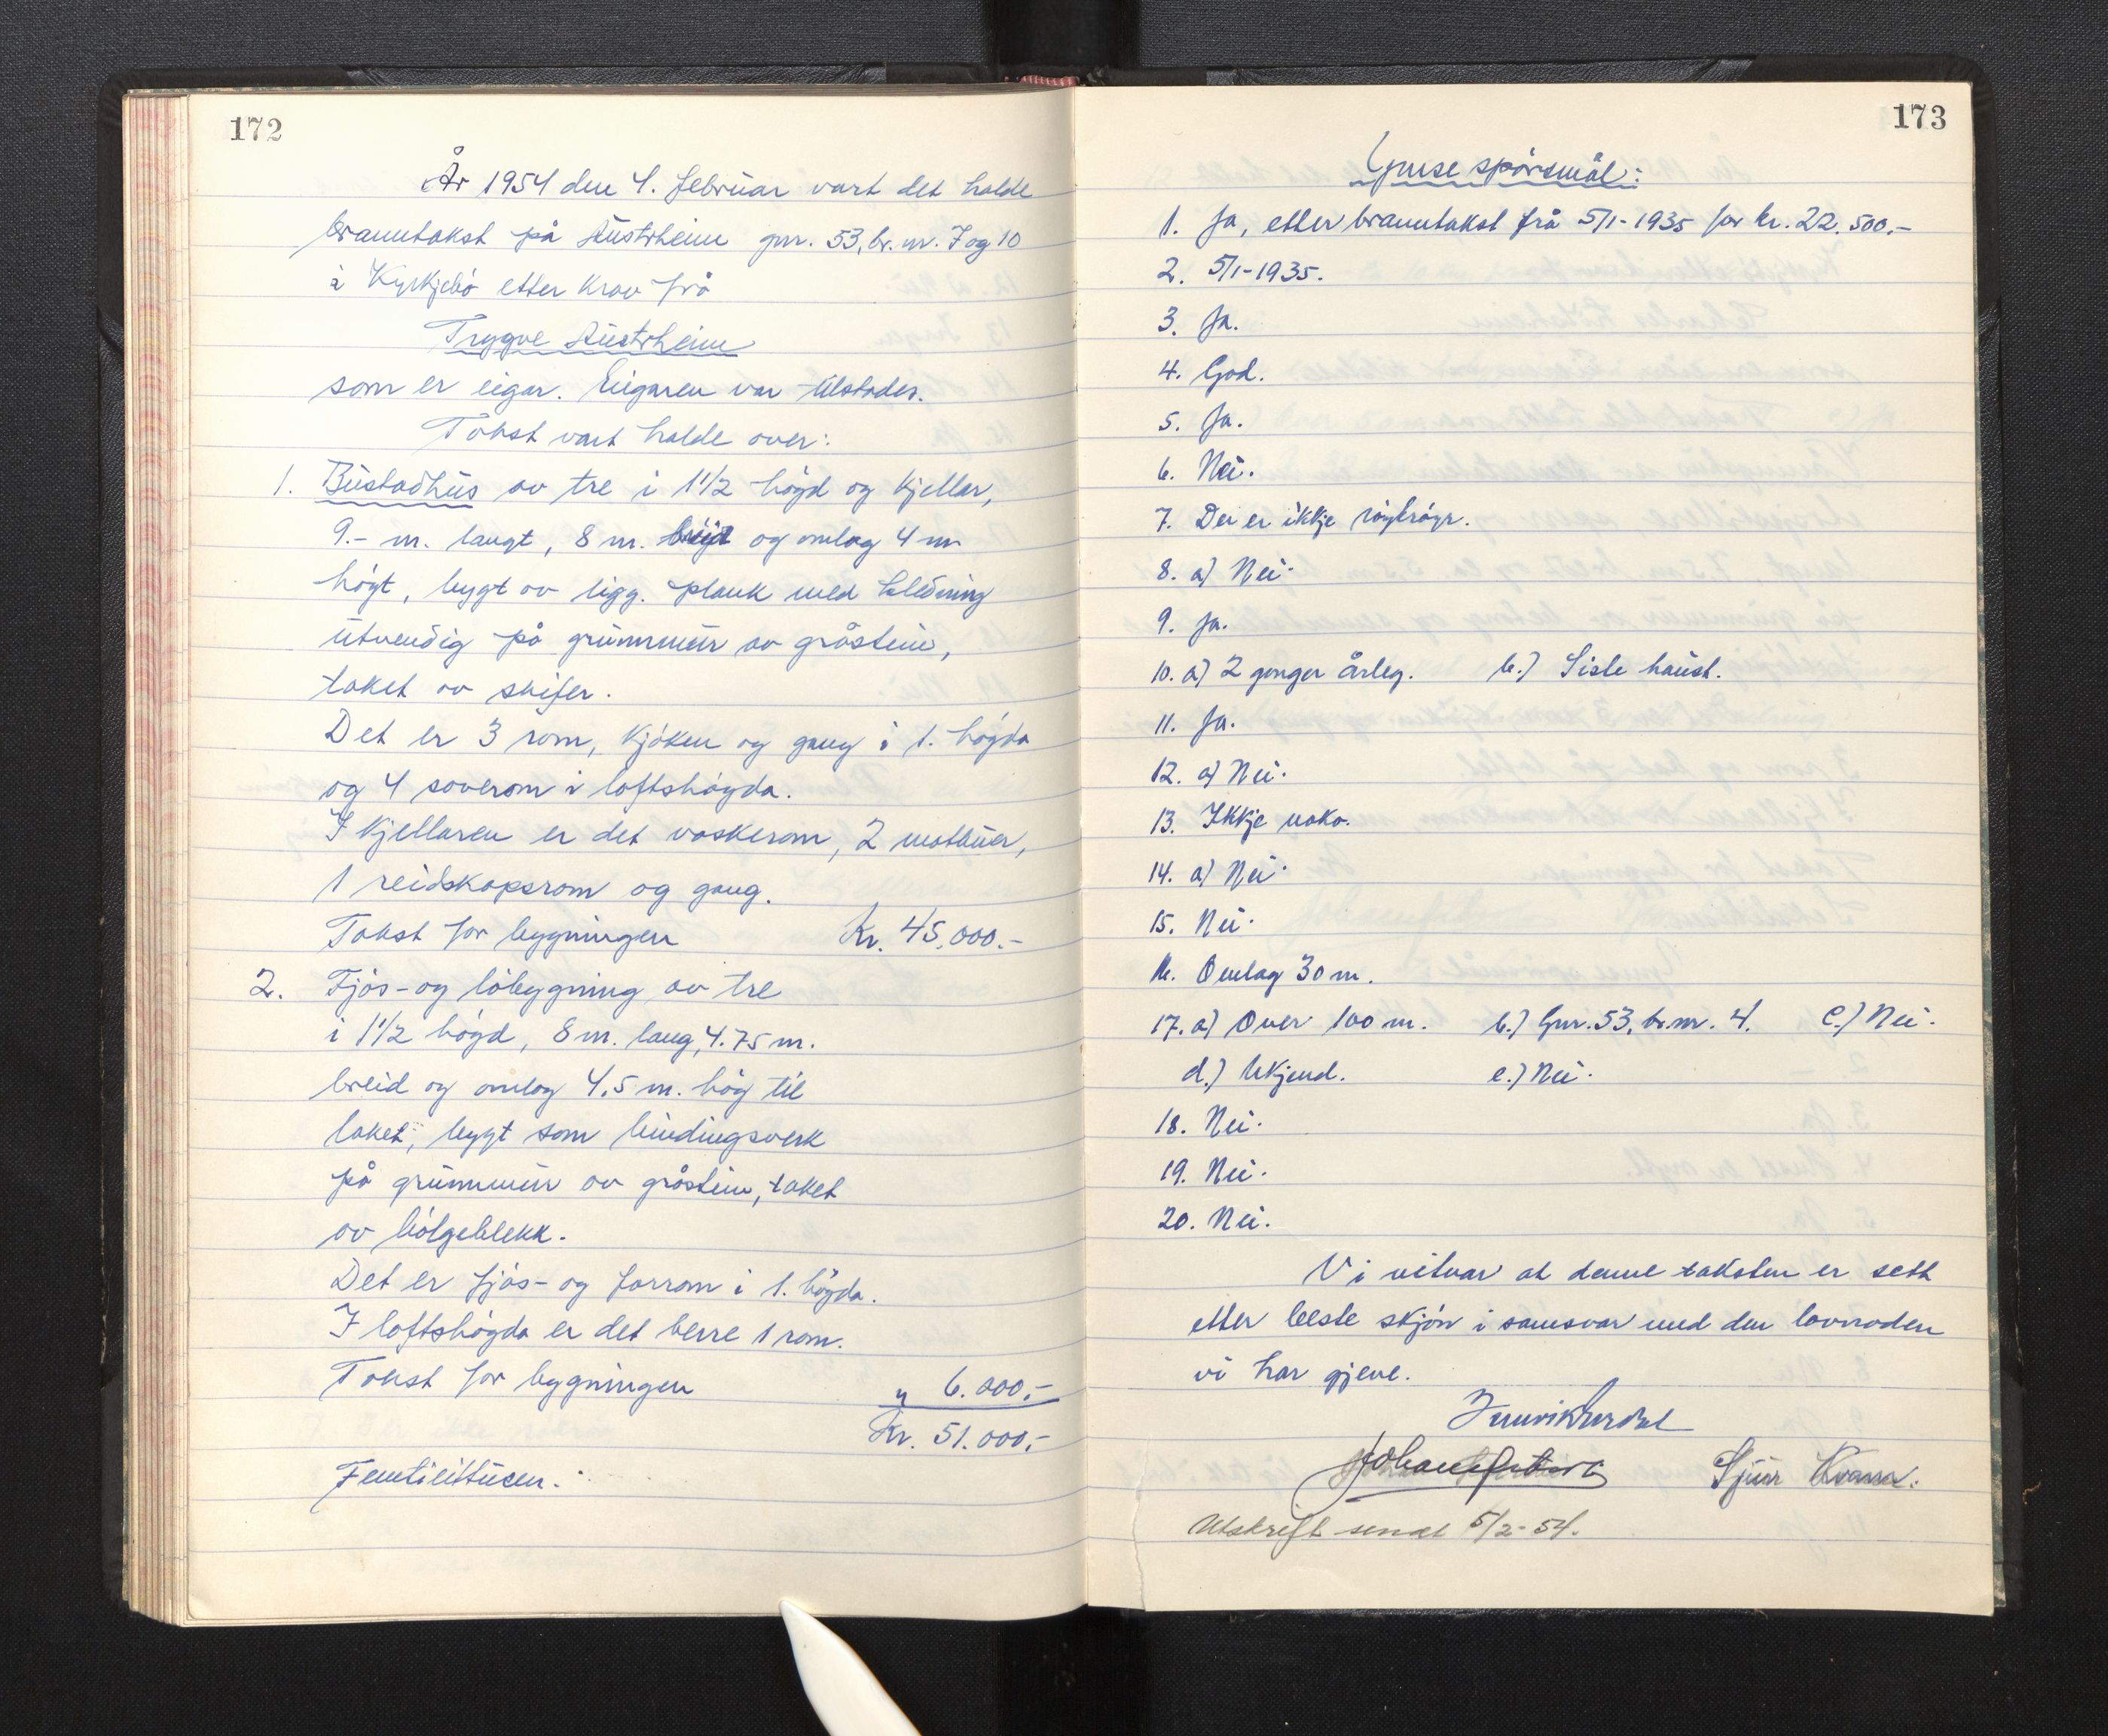 172
År 1954 den 4. februar vart det halde
branntakst på Austrheim gnr. 53, br. nr. 7 og 10
i Kyrkjebø etter krav frå
Trygve Austrheim
som er eigar. Eigaren var tilstades.
Takst vart halde over:
1. Bustadhus av tre i 1 1/2 høgd og kjellar,
9.- m. langt, 8 m. breidt og omlag 4 m
høgt, bygt av ligg. plank med kledning
utvendig på grunnmur av gråstein,
taket av skifer.
Det er 3 rom, kjøken og gang i 1. høgda
og 4 soverom i loftshøgda.
I kjellaren er det vaskerom, 2 matbuer,
1 reidskapsrom og gang.
Takst for bygningen Kr. 45.000.-
2. Fjøs- og løbygning av tre
i 1 1/2 høgd, 8 m. lang, 4.75 m.
breid og omlag 4,5 m. høg til
taket, bygt som bindingsverk
på grunnmur av gråstein, taket
av bølgeblekk.
Det er fjøs- og forrom i 1. høgda.
I loftshøgda er det berre 1 rom.
Takst for bygningen " 6.000,-
Kr. 51.000,-
Femtieittusen.
173
Ymse spørsmål:
1. Ja, etter branntakst frå 5/1-1935 for kr. 22.500.-
2. 5/1-1935.
3. Ja.
4. God.
5. Ja.
6. Nei.
7. Der er ikkje røykrøyr.
8. a) Nei.
9. Ja.
10. a) 2 gonger årleg. b.) Siste haust.
11. Ja.
12. a) Nei.
13. Ikkje noko.
14. a) Nei.
15. Nei.
16. Omlag 30 m.
17. a) Over 100 m. b.) Gnr. 53, br. nr. 4. c.) Nei.
d.) Ukjend. e.) Nei.
18. Nei.
19. Nei.
20. Nei.
Vi vitnar at denne taksten er sett
etter beste skjøn i samsvar med den lovnaden
vi har gjeve.
Sjur Kvamme.
Utskrift sendt 5/2-54.